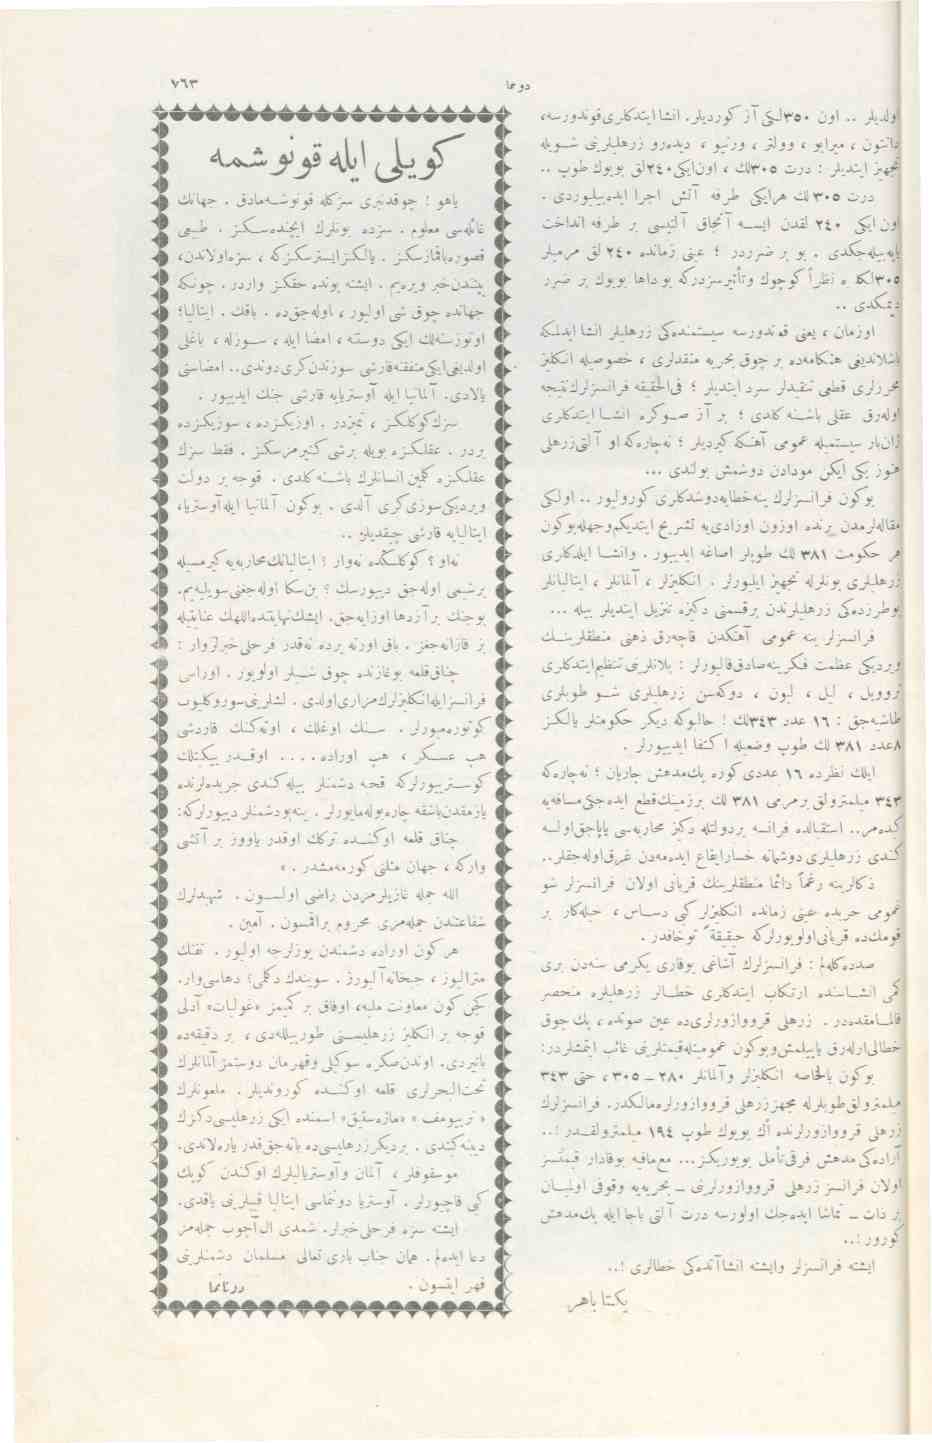 دونما
٧٦٣
اولديلر .. اون ٣٥٠لكى آز كورديلر. انشا ايتدكلرى قوندورسه،
دانتون ، ميرابو ، وولتر ، ورنيو ، ديده‌رو زرهليلرينى شويله
تجهيز ايتديلر : درت ٣٠٥لك ، اون‌ايكى ٢٤٠لق بويوك طوپ ..
درت ٣٠٥ لك هرايكى طرفه آتش اجرا ايده‌بيليوردى .
اون ايكى ٢٤٠ لقدن ايسه آنجاق آلتيسى بر طرفه انداخت
ياپه‌بيله‌جكدى . بو بر ضرردر ؛ عينى زمانده ٢٤٠ لق مرميلر
٣٠٥لكلره نظراً كوچوك وتأثيرسزدركه بو داها بويوك بر ضرر
ديمكدى ..
اوزمان ، يعنى قوندورسه سيستمنده‌كى زرهليلر انشا ايدلمكه
باشلانديغى هنكامه‌ده بر چوق بحريه منقدلرى ، خصوصيله انكليز
محررلرى قطعى تنقيدلر سرد ايتديلر ؛ فى‌الحقيقه فرانسزلرك نتيجه
اوله‌رق عقلى باشنه كلدى ؛ بر آز صوكره انشا ايتدكلرى
ژان‌بار سيستميله عمومى آهنكه كيرديلر ؛ نه‌چاره‌كه او آلتى زرهلى
هنوز يكى ايكن مودادن دوشمش بولندى ...
بوكون فرانسزلرك ينه خطايه دوشدكلرى كورولیور .. اولكى
مقاله‌لرمدن برنده اوزون اوزادى‌يه تشريح ايتديكم وجهله بوكون
هر حكومت ٣٨١ لك طوپلر اصاغه ايدييور . وانشا ايلدكلرى
زرهليلرى بونلرله تجهيز ايليورلر . انكليزلر ، آلمانلر ، ايتاليانلر
بوطرزده‌كى زرهليلرندن برقسمنى دكزه تنزيل ايتديلر بيله ...
فرانسزلر ينه عمومى آهنكدن قاچه‌رق ذهنى منطقلرينك
ويرديكى عظمت فكرينه صادق قاليورلر : پلانلرينى تنظيم ايتدكلرى
تورويل ، ليل ، ليون ، دوكه‌سن زرهليلرى شو طوپلرى
طاشيه‌جق : ١٦ عدد ٣٤٣لك ! حالبوكه ديكر حكومتلر يالكز
٨عدد ٣٨١ لك طوپ وضعيله اكتفا ايدييورلر .
ايلك نظرده ١٦ عددى كوره يك مدهش جاريان ؛ نه‌چاره‌كه
٣٤٣ ميلمترولق برمرمى ٣٨١ لك برزمينك قطع ايده‌جكى مسافه‌يه
كيده‌مز.. استقبالده فرانسه بردولتله دكز محاربه‌سى ياپاجق اولسه
كندى زرهليلرى دوشمانه خسار ايقاع ايده‌مه‌دن غرق اوله‌جقلر..
ذكالرينه رغماً دائما منطقلرينك قربانى اولان فرانسزلر شو
عمومى حربده عينى زمانده انكليزلر كبى دساس ، حيله‌كار بر
قومك‌ده قربانى اوليورلركه حقيقةً توخافدر .
صدده كله‌لم : فرانسزلرك آشاغى يوقارى يكرمى سنه‌دن برى
كمى انشاسنده ارتكاب ايتدكلرى خطالر زرهليلره منحصر
قالمامقده‌در . زرهلى قرووازورلرى‌ده عين صوندە ، پك چوق
خطالى اوله‌رق ياپيلمش وبوكون عموميتله قيمتلرينى غائب ايتمشلردر:
بوكون بالخاصه انكليزلر وآلمانلر ٢٨٠ ـ ٣٠٥ ، حتى ٣٤٣
ميلمترولق طوپلرله مجهز زرهلى قرووازورلره مالكدر. فرانسزلرك
زرهلى قرووازورلرنده اك بويوك طوپ ١٩٤ ميلمترولقدر !..
آراده‌كى مدهش فرقى تأمل بويوريكز... مع‌مافيه بوقادار قيمتسز
اولان فرانسز زرهلى قرووازورلرينى ـ بحريه‌يه وقوفى اولميان
بر ذات ـ تماشا ايده‌جك اولورسه درت آلتى باجا ايله پك مدهش
كورور !..
ايشته فرانسزلر وايشته انشاآتنده‌كى خطالرى !..
يكتا باهر
كويلى ايله قونوشمه
ياهو ! چوقدنبرى سزكله قونوشه‌مادق . جهانك
غائله‌سى معلوم . سزده بونلرك ايچنده‌سكز . طبيعى
قصوره باقمازسكز . يالكز ايسترسكزكه ، سزه اولاندن،
بيتندن خبر ويره‌يم . ايشته بونده حقكز واردر. چونكه
جهانده چوق شى اوليور ، اوله‌جق‌ده . باقك . ايتاليا؛
اوتوز سنه‌لك ايكى دوستنه ، امضا ايله ، سوزله ، باغلى
اولديغى ايكى متفقنه قارشى سوزندن كرى دوندى.. امضاسنى
يالادى. آلمانيا ايله آوسترياىه قارشى جنك ايدييور .
سزك كوكلكز ، تميزدر . اوزيكزده ، سوزيكزده
بردر . عقلكزه بويله برشى كتيرمزسكز . فقط سزك
عقلكزه كلمين انسانلرك باشنه كلدى . قوجه بر دولت
ويرديكى سوزى كرى آلدى . بوكون آلمانيا ايله آوستريا،
ايتالياىه قارشى چيقديلر ..
نه‌او ؟ كوكلكده نه‌وار ؛ ايتاليانك محاربه‌يه كيرمسيله
برشيمى اوله‌جق دييورسك ؟ بن سكا اوله‌جغنى سويليه‌يم.
بوجنك بر آز دها اوزايه‌جق. ايشك نهايتنده اللهك عنايتيله
بز قازانه‌جغز . باق اورته يرده نه‌قدر فرحلى خبرلر وار :
چناق‌قلعه بوغازنده چوق شيلر اولويور . اوراسى
فرانسزايله انكليزلرك مزارى اولدى . لشلرينى سوروكليوب
كوتوره‌ميورلر . سنك اوغلك ، اوته‌كنك قاردشى
هپ عسكر ، هپ اوراده .... اوقدر ييكيتلك
كوستريیورلركه قحبه دشمنلر بيله كندى جريده‌لرنده
يازمقدن باشقه چاره بوله‌مايورلر . ينه بودشمنلر دييورلركه:
چناق قلعه اوكنده تركك اوقدر ياووز بر آتشى
واركه ، جهان مثلنى كورمه‌مشدر . »
الله جمله غازيلرمزدن راضى اولسون . شهيدلرك
شفاعتندن جمله‌مزى محروم براقمسون . آمين .
هر كون اوراده دشمندن يوزلرجه اوليور . تفنك
متراليوز ، جبخانه آليورز . سويندك دكلمى؛ دهاسى وار.
كچن كون معاونت مليه، اوفاق بر كميمز «غوليات» آدلى
قوجه بر انكليز زرهليسنى طورپيللدى ، بر دقيقه‌ده
باتيردى. اوندن صكره سوكيلى وقهرمان دوستمز آلمانلرك
تحت‌البحرلرى قلعه اوكنده كوروندیلر . ملعونلرك
« تريومف » «ماژه‌ستيق» اسمنده ايكى زرهليسى دكزك
ديبنه كيتدى . برديكر زرهليسى‌ده باته‌جق قدر ياره‌لاندى.
موسقوفلر ، آلمان وآوستريالیلرك اوكندن كوپك
كبى قاچيورلر . آوستريا دونانماسى ايتاليا قييلرينى ياقدى.
ايشته سزه فرحلى خبرلر. شمدى ال آچوب جمله‌مز
دعا ايده‌لم . همان جناب بارى تعالى مسلمان دشمنلرينى
قهر ايتسون .
دونانما